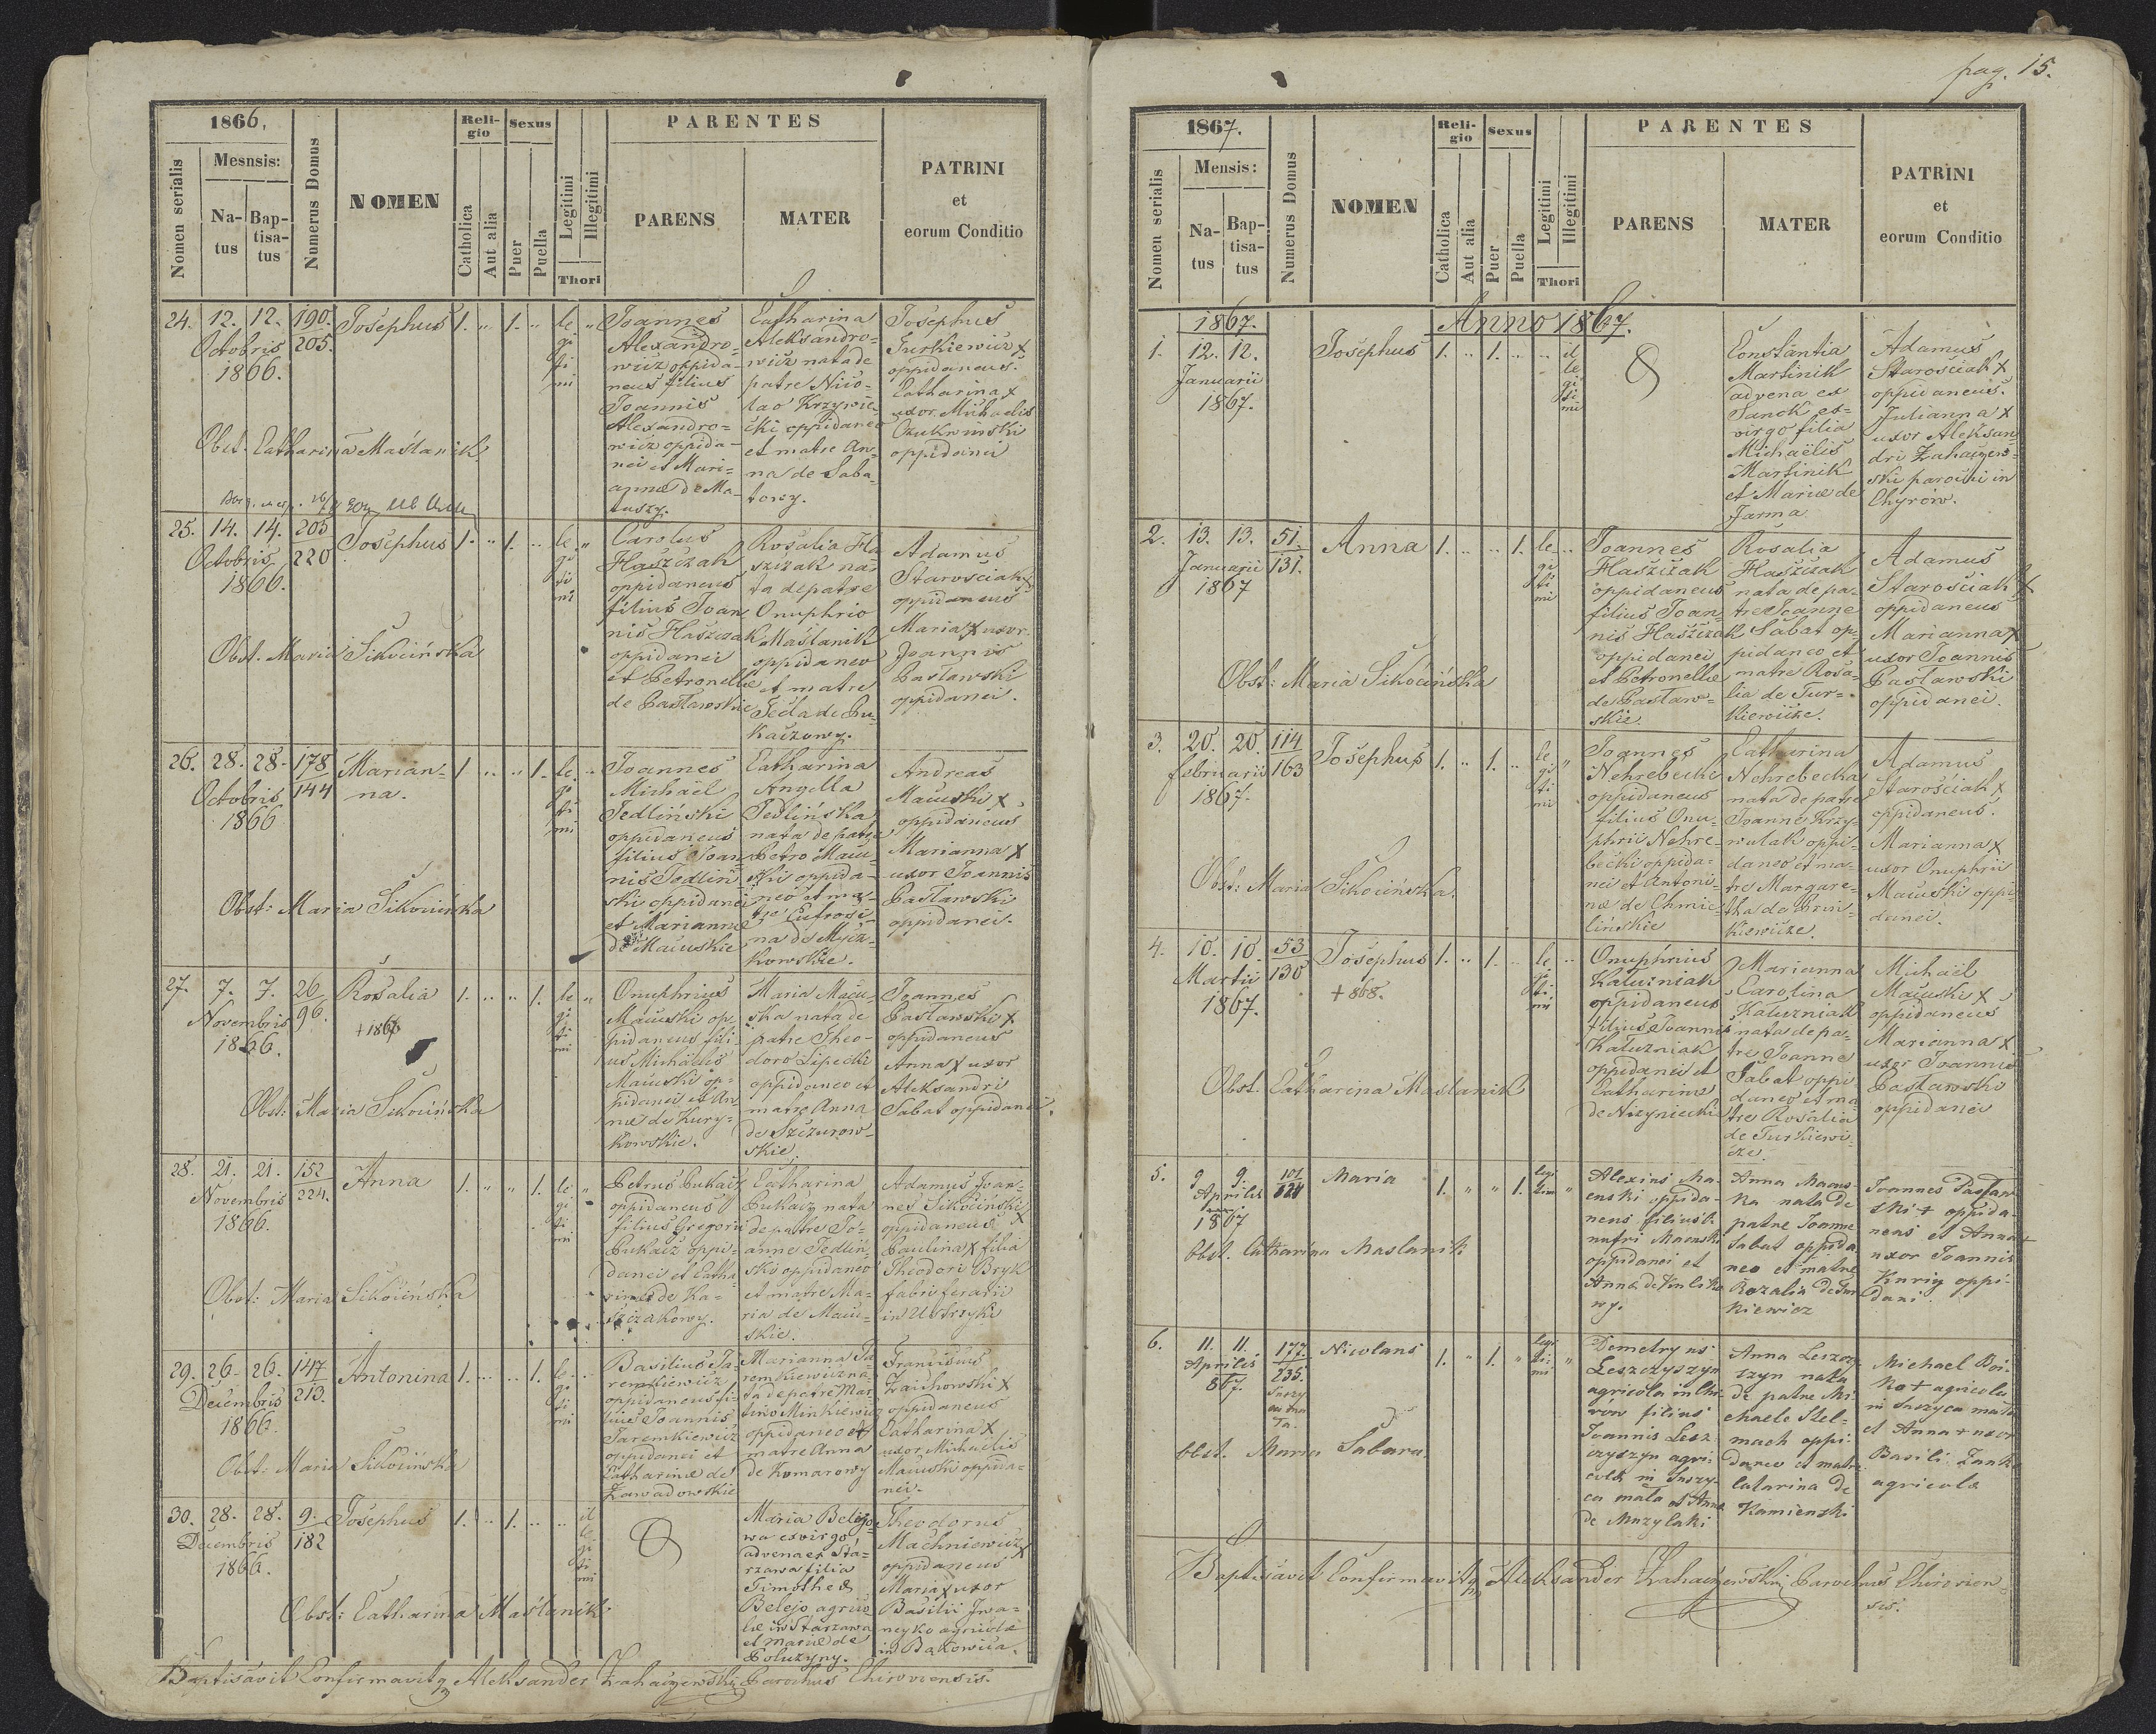 1866,
Nomen serialis
Mesnsis:
Na-
tus
Bap-
tisa-
tus
Numerus Domus
NOMEN
Reli-
gio
Catholica
Aut alia
Sexus
Puer
Puella
Legitimi
Illegitimi
Thori
PARENTES
PARENS
MATER
PATRINI
et
eorum Conditio
24. 12. 12. 190.
205.
Octobris
1866.
Josephus 1. " 1. "
le
gi
ti
mi
Joannes
Alexandro-
wicz oppida-
neus filius
Joannis
Alexandro=
wicz oppida-
nei et Mari=
annæ de Ma-
tuszy.
Catharina
Aleksandro-
wicz nata de
patre Nico-
lao Krzywie-
cki oppidaneo
et matre An-
na de Saba-
towy.
Josephus
Turkiewicz x
oppidaneus.
Catharina x
uxor Michaelis
oppidanei
Obst. Catharina Maślanik
25. 14. 14. 205
220
Octobris
1866.
Josephus 1. " 1. "
le
gi
ti
mi
Carolus
Haszczak
oppidaneus
filius Joan
nis Haszczak
oppidanei
et Petronellæ
de Pasławskie
Rosalia Ha
szczak na-
ta de patre
Onuphrio
Maślanik
oppidaneo
et matre
Tecla de Pu-
kaczowy.
Adamus
Starosciak x
oppidaneus
Maria x uxor
Joannis
Pasławski
oppidanei.
Obst. Maria Sikocińska
26. 28. 28. 178
144
Octobris
1866
Marian-
na.
1 " " 1.
le
gi
ti
mi
Joannes
Michaël
Jedliński
oppidaneus
filius Joan-
nis Jedliń
ski oppidanei
et Mariannæ
de Macuskie
Catharina
Angella
Jedlińska
nata de patre
Petro Macu-
ski oppida-
neo et ma-
tre Eufrosi-
na de Mycz-
kowskie.
Andreas
Macuski x
oppidaneus
Marianna x
uxor Joannis
Pasławski
oppidanei.
Obst: Maria Sikocińska
27. 7. 7. 26
96.
Novembris
1866.
Rosalia
+1866
1. " " 1.
le
gi
ti
mi
Onuphrius
Macuski op-
pidaneus fili-
us Michaëlis
Macuski op-
pidanei et An
næ de Kury-
kowskie.
Maria Macu-
ska nata de
patre Theo-
doro Lipecki
oppidaneo et
matre Anna
de Szczurow-
skie.
Joannes
Pasławski x
oppidaneus
Anna x uxor
Aleksandri
Sabat oppidanei.
Obst: Maria Sikocińska
28. 21. 21. 152
224.
Novembris
1866.
Anna 1. " " 1.
le
gi
ti
mi
Petrus Pukacz
oppidaneus
filius Gregorii
Pukacz oppi-
danei et Catha
rinæ de Ka-
szczakowy.
Catharina
Pukacz nata
de patre Jo-
anne Jedliń-
ski oppidaneo
et matre Ma-
ria de Macu-
skie.
Adamus Joan-
nes Sikociński
oppidaneus x
Paulina x filia
Theodori Bryk
fabri ferarii
in Ustrzyki
Obst: Maria Sikocińska
29. 26. 26. 147
213.
Decembris
1866.
Antonina 1. " " 1.
le
gi
ti
mi
Basilius Ja-
remkiewicz
oppidaneus fi-
lius Joannis
Jaremkiewicz
oppidanei et
Catharinæ de
Zawadowskie
Marianna Ja
remkiewicz na-
ta de patre Mar-
tino Minkiewicz
oppidaneo et
matre Anna
de Komarowy
Franciscus
Zaichowski x
oppidaneus
Catharina x
uxor Michaëlis
Macuski oppida-
nei.
Obst: Maria Sikocińska
30. 28. 28. 9.
182
Decembris
1866.
Josephus 1. " 1. "
il
le
gi
ti
mi
Maria Belejo-
wa ex virgo
advena ex Sta-
rzawa filia
Timothei
Belejo agrico-
læ in Starzawa
et Mariæ de
Poluzyny.
Theodorus
Machniewicz x
oppidaneus
Maria x uxor
Basilii Iwa-
neyko agricolæ
in Bąkowica.
Obst: Catharina Maślanik.
Baptisavit Confirmavitq Aleksander Zahaczewski Parochus Chiroviensis.
pag. 15.
1867.
Nomen serialis
Mensis:
Na-
tus
Bap-
tisa-
tus
Numerus Domus
NOMEN
Reli-
gio
Catholica
Aut alia
Sexus
Puer
Puella
Legitimi
Illegitimi
Thori
PARENTES
PARENS
MATER
PATRINI
et
eorum Conditio
1867. Anno 1867.
1. 12. 12.
Januarii
1867.
Josephus 1. " 1. "
il
le
gi
ti
mi
Constantia
Martinik
advena ex
Sanok ex-
virgo filia
Michaëlis
Martinik
et Mariæ de
Jarma
Adamus
Starościak x
oppidaneus.
Julianna x
uxor Aleksan
dri Zahaczew-
ski parochi in
Chyrów.
2. 13. 13. 51.
131.
Januarii
1867
Anna 1. " " 1.
le
gi
ti
mi
Joannes
Haszczak
oppidaneus
filius Joan-
nis Haszczak
oppidanei
et Petronellæ
de Pasław-
skie.
Rosalia
Haszczak
nata de pa-
tre Joanne
Sabat op-
pidaneo et
matre Rosa-
lia de Tur-
kiewicze.
Adamus
Starościak x
oppidaneus
Marianna x
uxor Joannis
Pasławski
oppidanei.
Obst: Maria Sikocińska
3. 20. 20. 114
163
februarii
1867.
Josephus 1. " 1. "
le
gi
ti
mi
Joannes
Nehrebecki
oppidaneus
filius Onu-
phrii Nehre-
becki oppida-
nei et Antoni-
næ de Chmie-
lińskie
Catharina
Nehrebecka
nata de patre
Joanne Krzy-
wulak oppi-
daneo et ma-
tre Margare-
tha de Brin-
kiewicze.
Adamus
Starościak x
oppidaneus.
Marianna x
uxor Onuphrii
Macuski oppi-
danei.
Obst: Maria Sikocińska.
4. 10. 10. 53
130
Martii
1867.
Josephus
+868.
1. " 1. "
le
gi
ti
mi
Onuphrius
Kaluzniak
oppidaneus
filius Joannis
Kaluzniak
oppidanei et
Catharinæ
de Nizyniecki
Marianna
Carolina
Kaluzniak
nata de pa-
tre Joanne
Sabat oppi
daneo et ma
tre Rosalia
de Turkiewi-
cze.
Michaël
Macuski x
oppidaneus
Marianna x
uxor Joannis
Pasławski
oppidanei
Obst. Catharina Maślanik
5. 9 9. 101
224
Aprilis
1867
Maria 1. " " 1.
legi
timi
Alexius Ma
cuski oppida-
neus filius
Macuski
oppidanei et
Anna Macus-
ka nata de
patre Joanne
Sabat oppida
neo et matre
Rozalia de Tur
kiewicz
Joannes Pasław
ski + oppida-
neus et Anna +
uxor Joannis
Kuriy oppi-
dani
Obst. Catharina Maslanik
6. 11. 11. 177.
235.
Aprilis
867.
Nicolaus 1. " 1. "
legi
ti
mi
Demetryus
Leszczyszyn
agricola in Chi
row filius
Joannis Lesz
czyszyn agri-
cola in Suszy-
ca mala et Anna
de Muzylaki
Anna Leszczy
szyn nata
de patre Mi
chaele Stel-
mach oppi-
daneo et matre
Catarina de
Kamienski
Michael Boi-
ko + agricola
in Suszyca mała
et Anna + uxor
Basili Zanko
agricola
obst. Maria Sabara
Baptisavit Confirmavitq Aleksander Zahaczewski Parochus Chirovien-
sis.